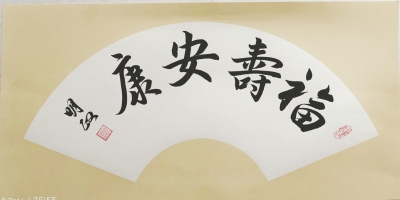 福壽安康
明政